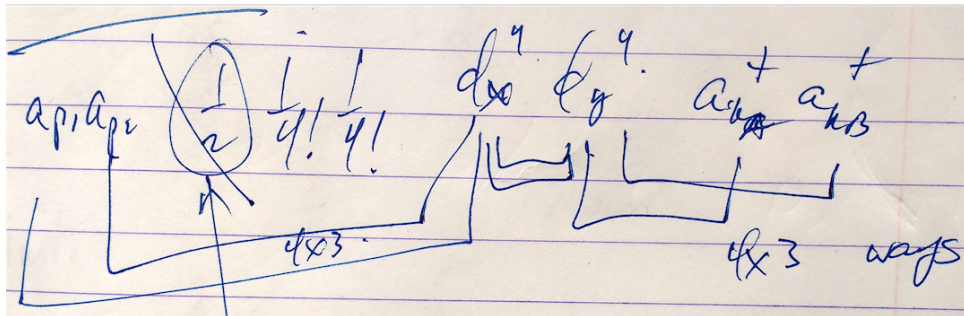 a_{p_1} a_{p_2} \frac{1}{2} \frac{1}{4!} \frac{1}{4!} \phi_x^4 \phi_y^4 a_{k_A}^+ a_{k_B}^+
4x3. 4x3 ways